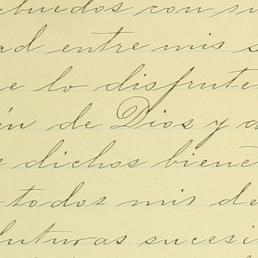 ibuidos con su
ad entre mis s
e lo disfrute
én de Dios y d
e dichos biene
todos mis de
futuras sucesi